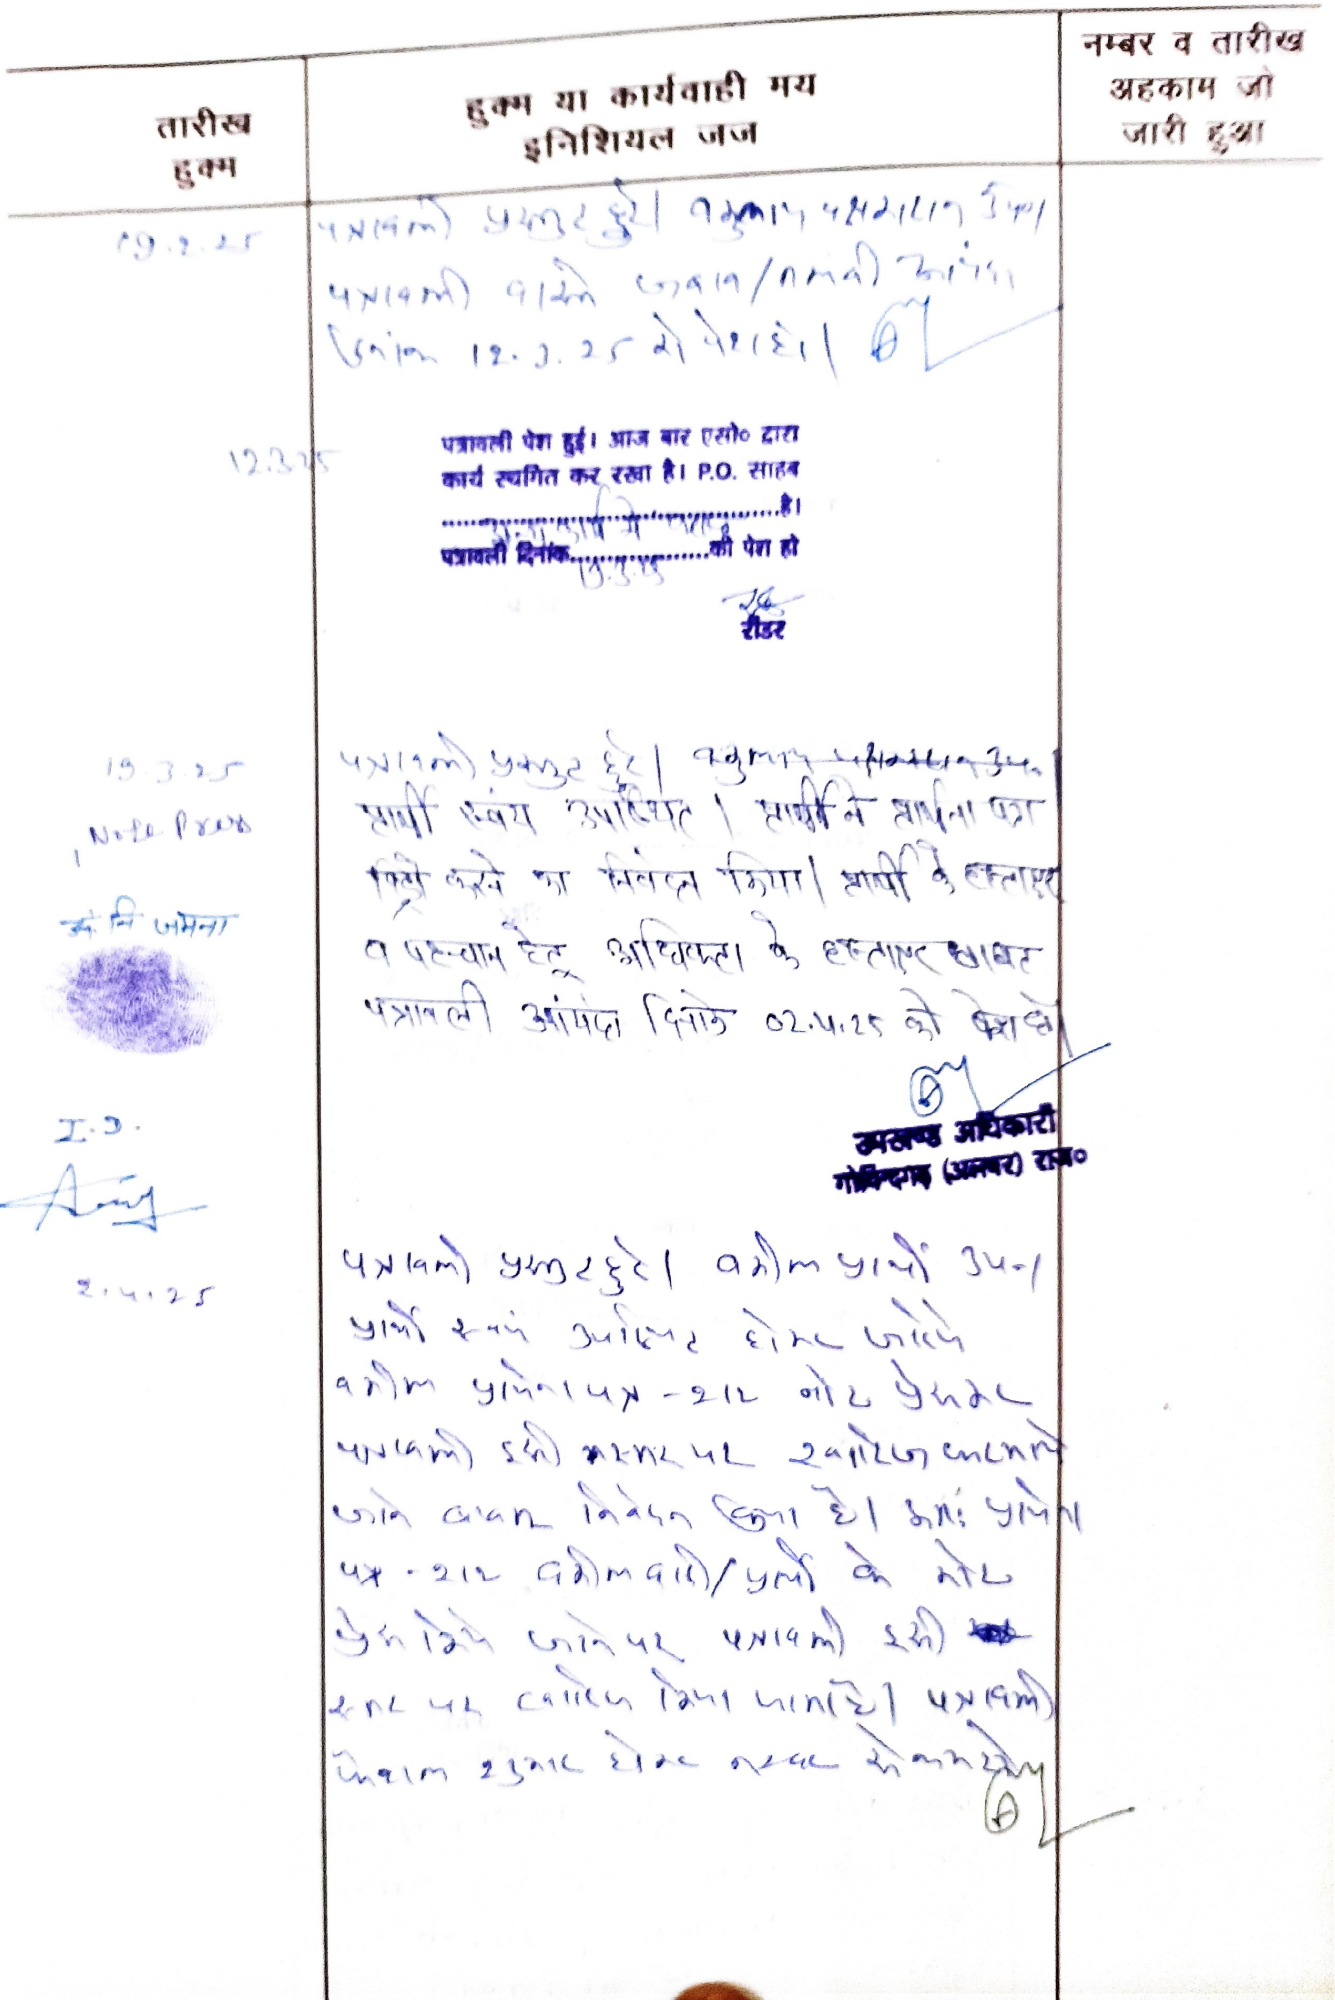 तारीख
हुक्म
हुक्म या कार्यवाही मय
इनिशियल जज
नम्बर व तारीख
अहकाम जो
जारी हुआ
19.2.25
पत्रावली प्रस्तुत हुई। वकुलाय पक्षकारान उप०।
पत्रावली वास्ते जवाब/तलबी आयंदा
दिनांक 12.3.25 को पेश हो।
12.3.25
पत्रावली पेश हुई। आज बार एसो० द्वारा
कार्य स्थगित कर रखा है। P.O. साहब
है।
पत्रावली दिनांक 19.3.25 को पेश हो
रीडर
19.3.25
पत्रावली प्रस्तुत हुई। वकुलाय पक्षकारान उप०।
Note Press
प्रार्थी स्वंय उपस्थित। प्रार्थी ने प्रार्थना पत्र
करने का निवेदन किया। प्रार्थी के हस्ताक्षर
नि जमना
व पहचान हेतू अधिवक्ता के हस्ताक्षर
पत्रावली आयंदा दिनांक 02.4.25 को पेश हो।
I.D.
उपखण्ड अधिकारी
गोविन्दगढ़ (अलवर) राज०
2.4.25
पत्रावली प्रस्तुत हुई। वकील प्रार्थी उप०।
प्रार्थी स्वयं उपस्थित होकर जरिये
वकील प्रार्थना पत्र - 212 नोट प्रेस कर
पत्रावली इसी स्तर पर खारिज फरमाये
जाने बाबत निवेदन किया है। अतः प्रार्थना
पत्र - 212 वकील वादी/प्रार्थी के नोट
प्रेस किये जाने पर पत्रावली इसी
स्तर पर खारिज किया जाता है। पत्रावली
फैसल शुमार होकर नम्बर से कम हो।